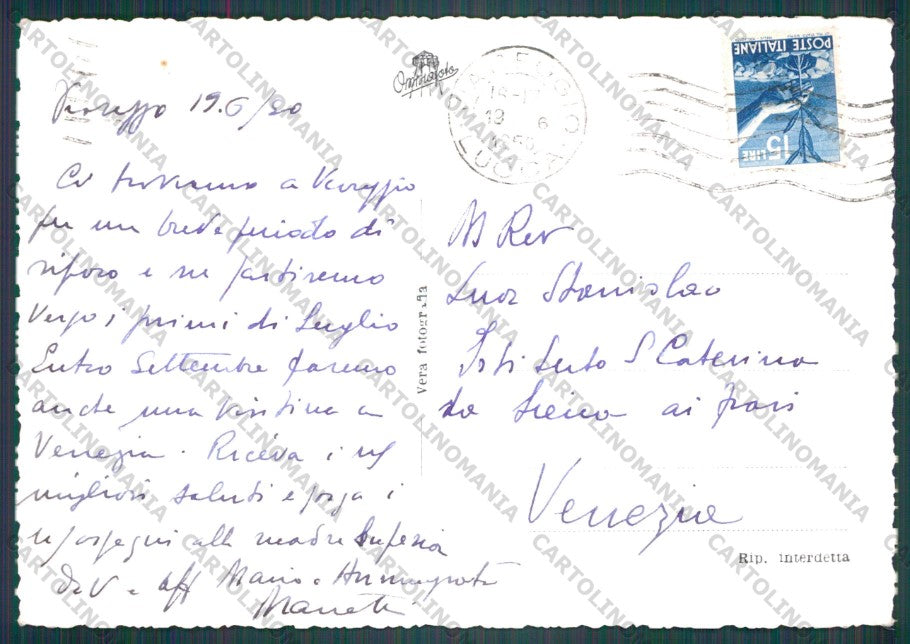 Viareggio 19.6/50
Ci troviamo a Viareggio
per un breve periodo di
riposo e ne partiremo
verso i primi di Luglio
Entro Settembre faremo
anche una visitina a
Venezia. Riceva i ns/
migliori saluti e porga i
ns/ossequi alla madre Superiora
Mario e
Manetti
Omniafoto
VIAREGGIO
LUCCA
POSTE ITALIANE
15 LIRE
Vera fotografia
M Rev
Suor Stanislao
Istituto S Caterina
da Siena ai frari
Venezia
Rip. interdetta
CARTOLINOMANIA